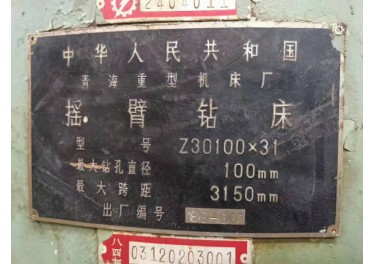 2404011
中华人民共和国
青海重型机床厂
摇臂钻床
型号 Z30100×31
最大钻孔直径 100mm
最大跨距 3150mm
出厂编号
八四 03120203001